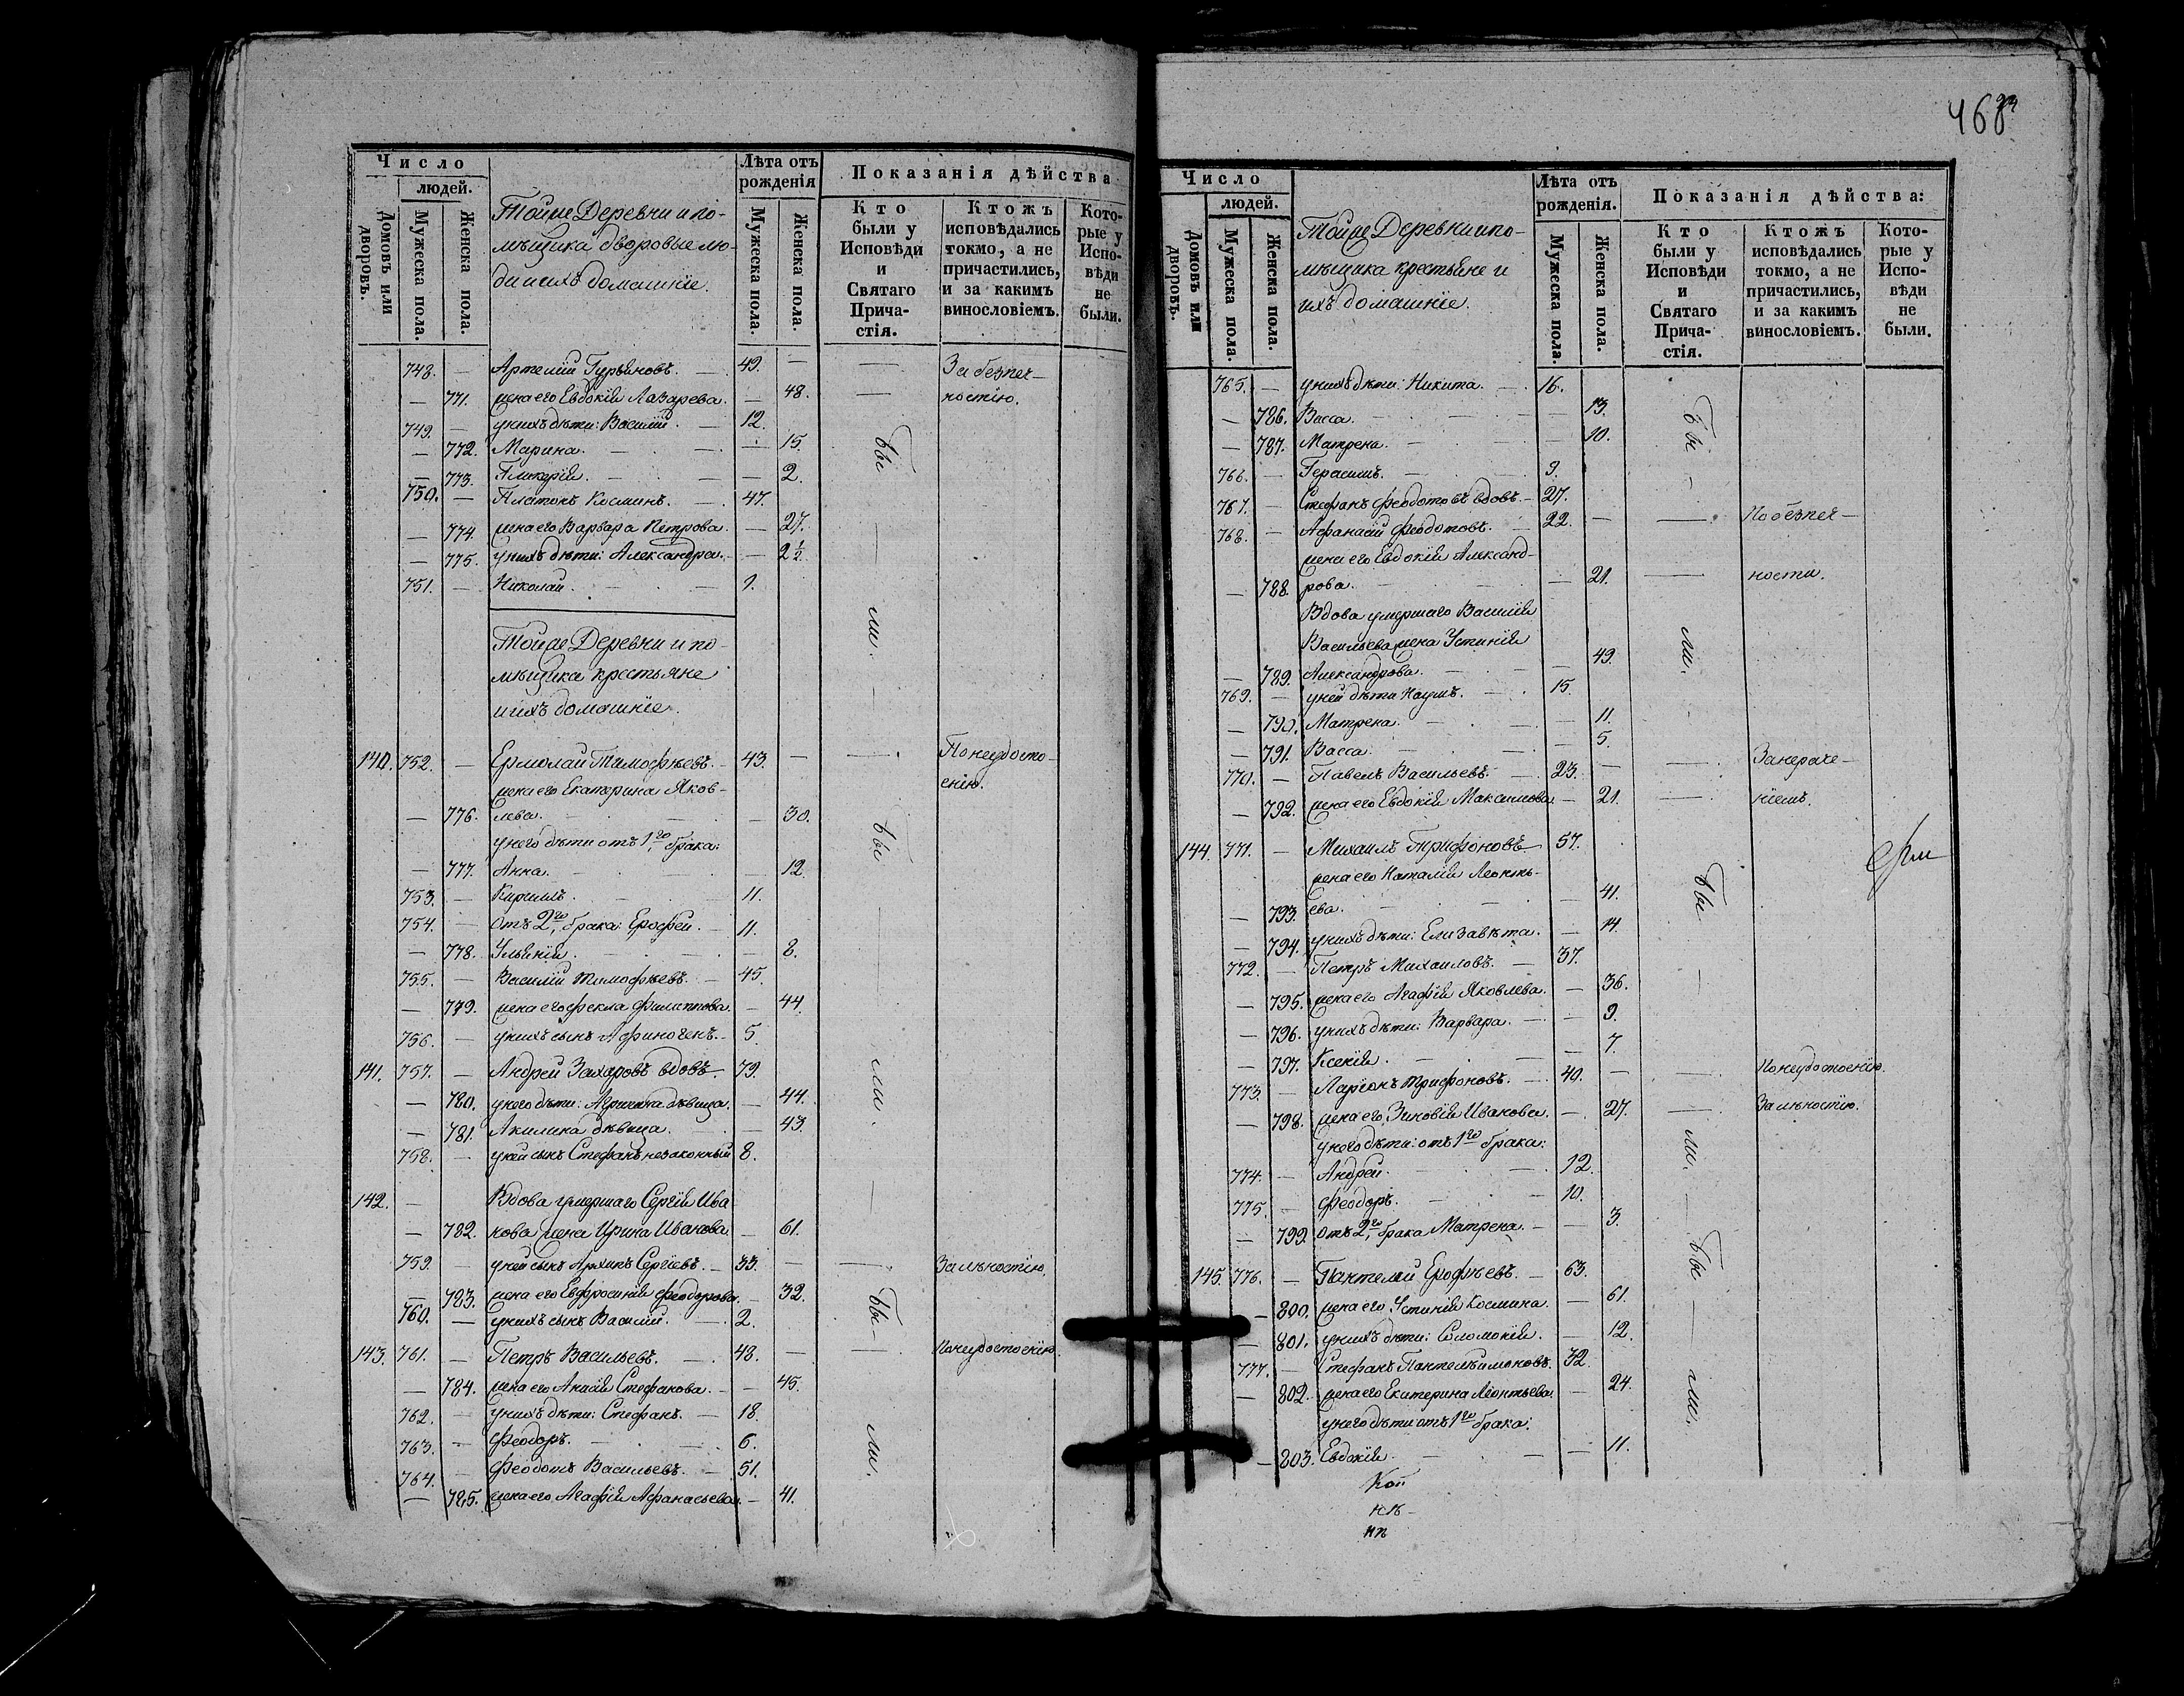 Число
людей.
Домовъ или дворовъ.
Мужеска пола.
Женска пола.
Тойже Деревни и по-
мѣщика дворовые лю-
ди и ихъ домашніе.
Лѣта отъ
рожденія
Мужеска пола.
Женска пола.
Показанія дѣйства
Кто
были у
Исповѣди
и
Святаго
Прича-
стія.
Ктожъ
исповѣдались
токмо, а не
причастились,
и за какимъ
винословіемъ.
Кото-
рые у
Испо-
вѣди
не
были.
748. — Артемій Гурьяновъ. — 49. — — За безпеч-
— 771. жена его Евдокія Лазарева. — 48. — ностію.
749. — у нихъ дѣти: Василій. — 12.
— 772. Марина. — — 15. бы
— 773. Гликерія. — — 2.
750. — Платонъ Косминъ. — 47.
— 774. жена его Варвара Петрова. — 27.
— 775. у нихъ дѣти: Александра. — 2½.
751. — Николай. — 1.
ли.
Тойже Деревни и по-
мѣщика крестьяне
и ихъ домашніе.
140. 752. — Ермолай Тимофѣевъ. — 43. — — По неудосто-
жена его Екатерина Яков- енію.
— 776. лева. — — 30.
у него дѣти отъ 1го брака: бы
— 777. Анна. — — 12.
753. — Кирилъ. — 11.
754. — Отъ 2го брака: Ерофей. — 11.
— 778. Ульянія. — — 8.
755. — Василій Тимофѣевъ. — 45.
— 779. жена его Фекла Филиппова. — 44.
756. — у нихъ сынъ Афиногенъ. — 5.
141. 757. — Андрей Захаровъ вдовъ. 79. ли.
— 780. у него дѣти: Агрипина дѣвица. — 44.
— 781. Акилина дѣвица. — — 43.
758. — у ней сынъ Стефанъ незаконный 8.
142. — Вдова умершаго Сергія Ива
— 782. нова жена Ирина Иванова — 61.
759. — у ней сынъ Архипъ Сергіевъ. — 33. — — За лѣностію.
— 783. жена его Евфросинія Феодорова. — 32.
760. — у нихъ сынъ Василій. — 2. бы —
143. 761. — Петръ Васильевъ. — 48. — — По неудостоенію.
— 784. жена его Анисія Стефанова. — 45.
762. — у нихъ дѣти: Стефанъ. — 18.
763. — Феодоръ. — 6. ли.
764. — Феодотъ Васильевъ. — 51.
— 785. жена его Агафія Афанасьева. — 41.
468
Число
людей.
Домовъ или дворовъ.
Мужеска пола.
Женска пола.
Тойже Деревни и по-
мѣщика крестьяне и
ихъ домашніе.
Лѣта отъ
рожденія.
Мужеска пола.
Женска пола.
Показанія дѣйства:
Кто
были у
Исповѣди
и
Святаго
Прича-
стія.
Ктожъ
исповѣдались
токмо, а не
причастились,
и за какимъ
винословіемъ.
Кото-
рые у
Испо-
вѣди
не
были.
765. — у нихъ дѣти: Никита. — 16.
— 786. Васса. — — 13. бы
— 787. Матрена. — — 10.
766. — Герасимъ. — 9.
767. — Стефанъ Феодотовъ вдовъ. — 27.
768. — Афанасій Феодотовъ. — 22. — — По безпеч-
жена его Евдокія Александ-
— 788. рова. — — 21. — ности.
Вдова умершаго Василія
Васильева жена Устинія
— 789. Александрова. — — 49. ли.
769. — у ней дѣти Наумъ. — 15.
— 790. Матрена. — — 11.
— 791. Васса. — — 5.
770. — Павелъ Васильевъ. — 23. — — За нераче-
— 792. жена его Евдокія Максимова — 21. — ніемъ.
144. 771. — Михаилъ Трифоновъ 57.
жена его Наталія Леонть- бы
— 793. ева. — — 41.
— 794. у нихъ дѣти: Елизавета. — 14.
772. — Петръ Михаиловъ. — 37.
— 795. жена его Агафія Яковлева. — 36.
— 796. у нихъ дѣти: Варвара. — — 9.
— 797. Ксенія. — — 7.
773. — Ларіонъ Трифоновъ. — 40. — — По неудостоенію.
— 798. жена его Зиновія Иванова. — 27. — За лѣностію.
у него дѣти: отъ 1го брака: ли.
774. — Андрей. — 12.
775. — Феодоръ. — 10.
— 799. отъ 2го брака Матрена. — — 3.
бы
145. 776. — Пантелей Ерофѣевъ. — 63.
— 800. жена его Устинія Космина. — 61.
— 801. у нихъ дѣти: Соломонія. — 12.
777. — Стефанъ Пантелѣимоновъ. 32.
— 802. жена его Екатерина Леонтьева. — 24. ли.
у него дѣти отъ 1го брака:
— 803. Евдокія. — — 11.